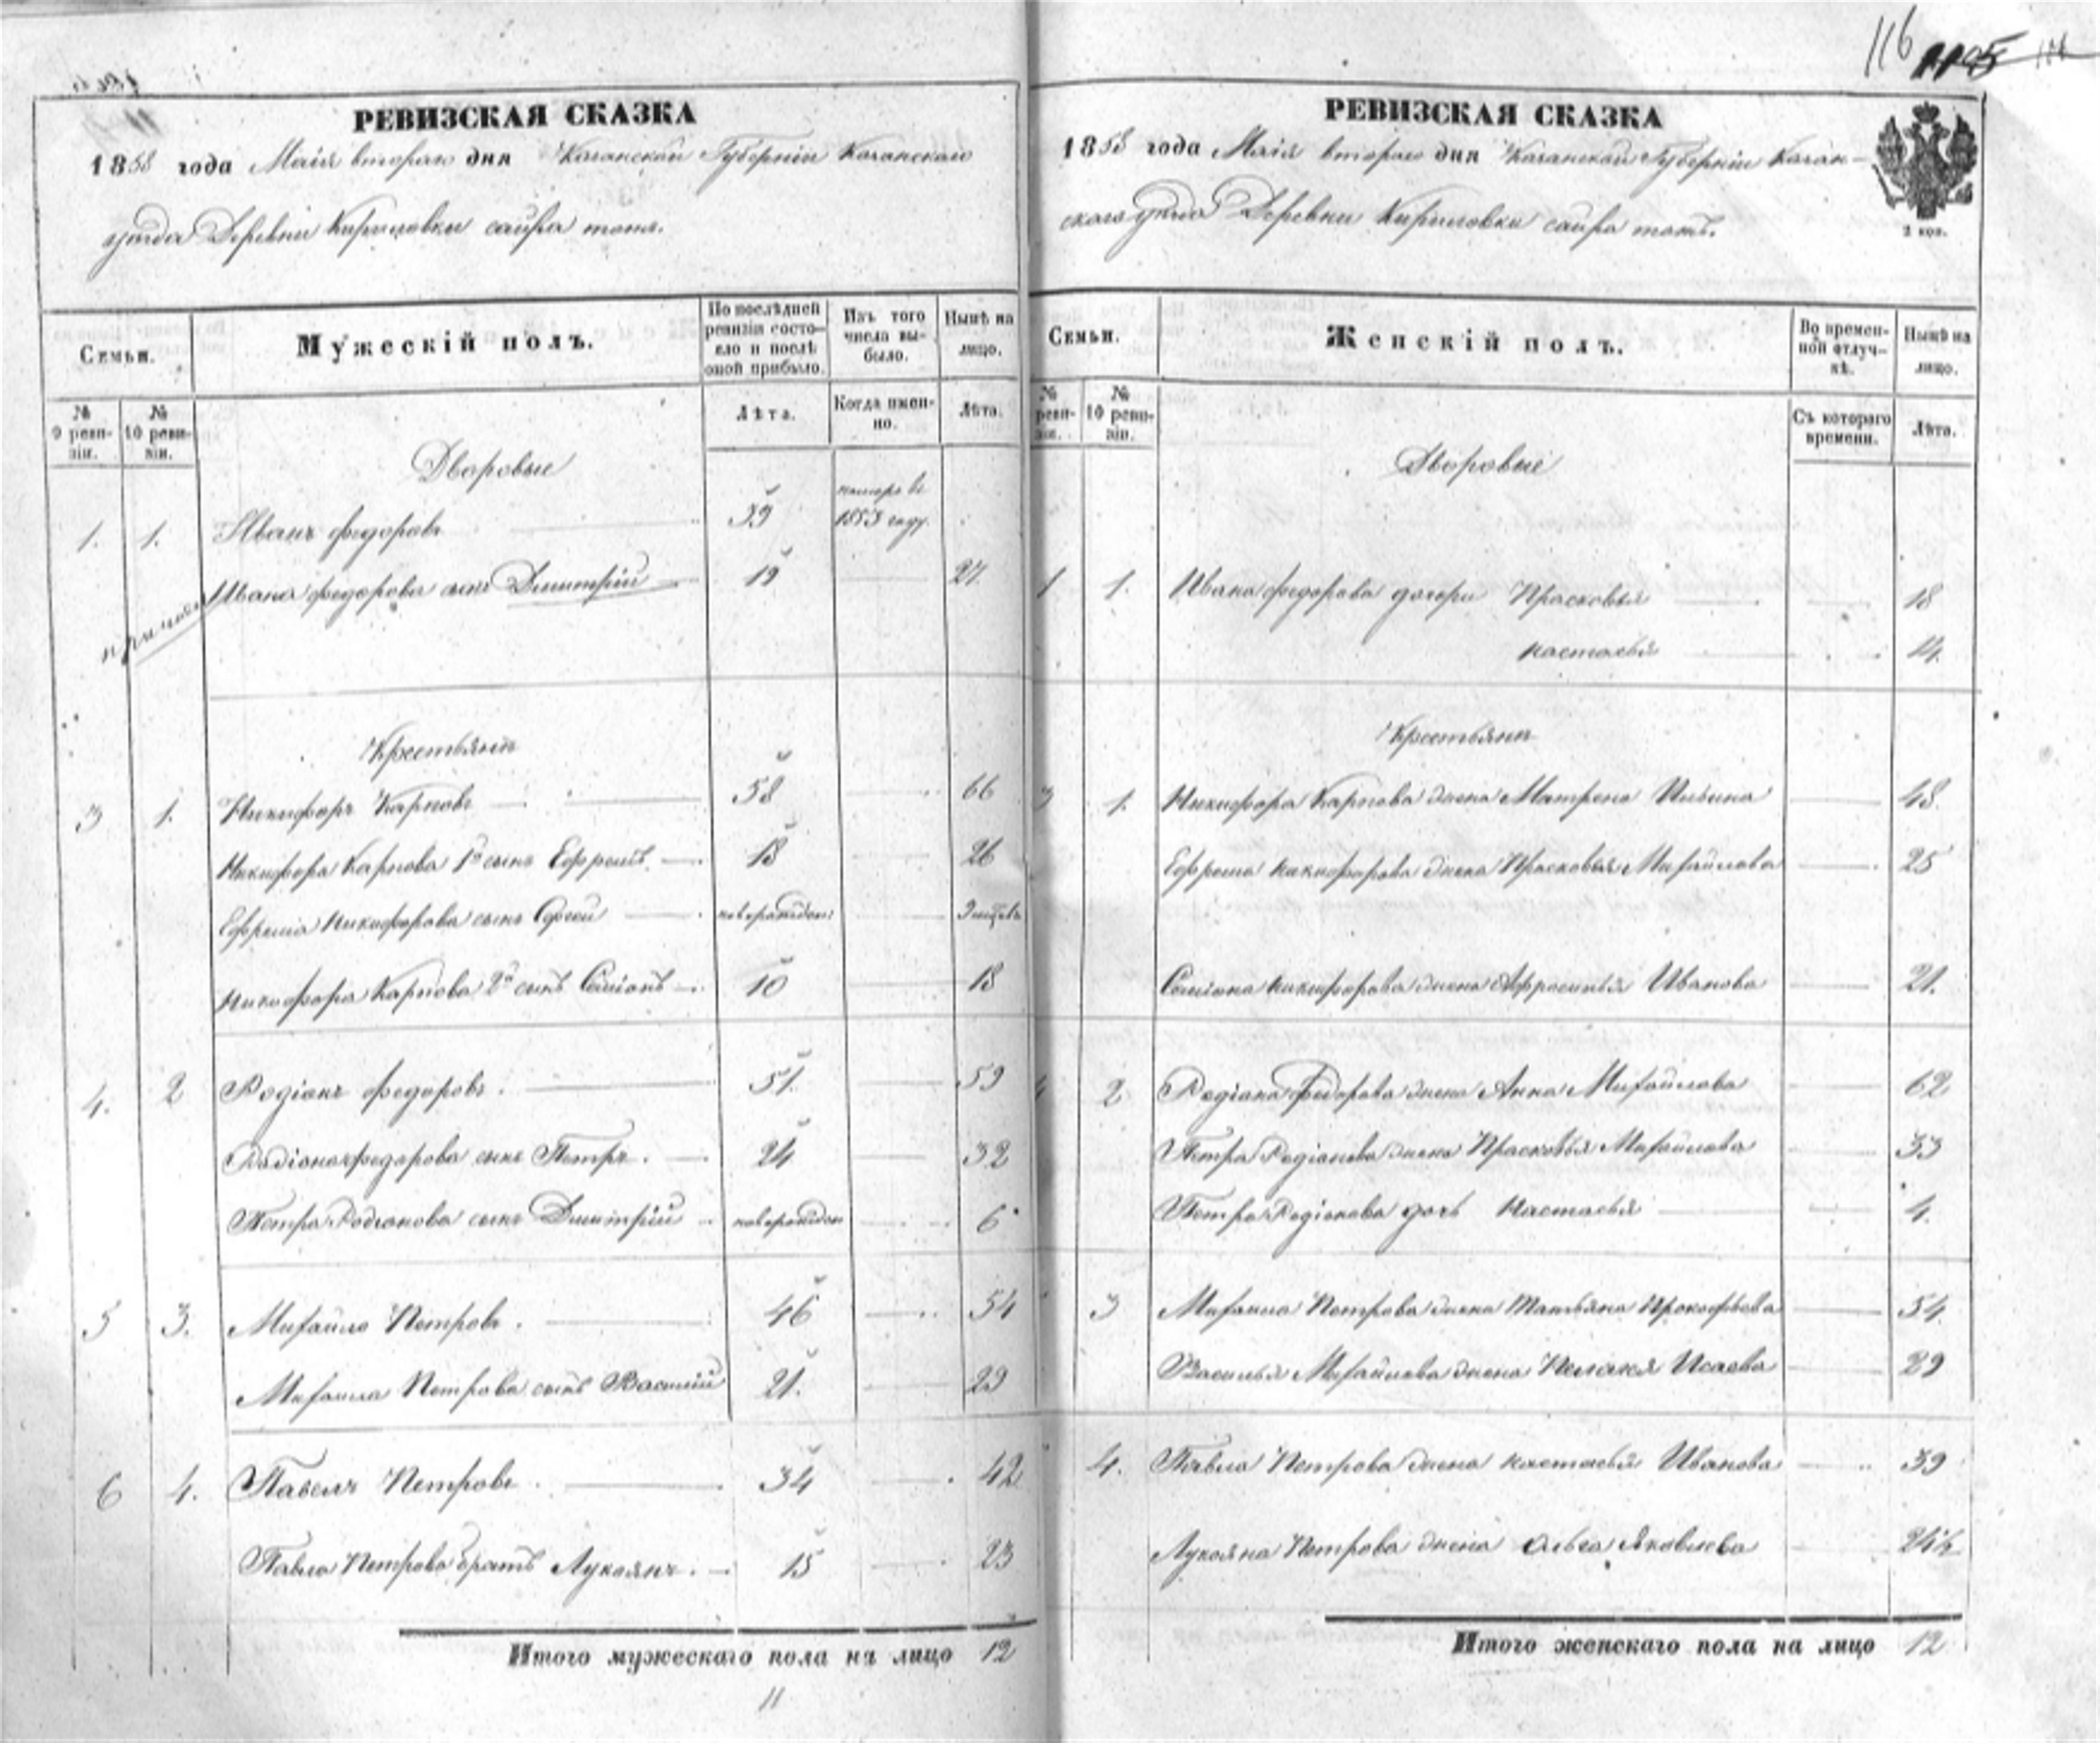 116 1105
РЕВИЗСКАЯ СКАЗКА
1858 года Маія втораго дня Казанской Губерніи Казанскаго
уѣзда Деревни Кириловки
Семьи.
Мужескій полъ.
По послѣдней ревизіи состояло и послѣ оной прибыло.
Изъ того числа выбыло.
Нынѣ на лицо.
№ 9 ревизіи.
№ 10 ревизіи.
Лѣта.
Когда именно.
Лѣта.
Дворовые
1. 1. Иванъ Федоровъ 39 померъ въ 1853 году.
Ивана Федорова сынъ Дмитрій 19 27.
Крестьянъ
3 1. Никифоръ Карповъ 58 66
Никифора Карпова 1й сынъ Ефремъ 18 26
Ефрема Никифорова сынъ новорожден:
Никифора Карпова 2й сынъ Семіонъ 10 18
4. 2 Родіонъ Федоровъ. 51. 59
Родіона Федорова сынъ Петръ. 24 32
Петра Родіонова сынъ Дмитрій новорожден 6
5 3. Михайло Петровъ. 46 54
Михаила Петрова сынъ Василій 21. 29
6 4. Павелъ Петровъ. 34 42
Павла Петрова братъ Лукоянъ. 15 23
Итого мужескаго пола на лицо 12
11
РЕВИЗСКАЯ СКАЗКА
1858 года Маія втораго дня Казанской Губерніи Казан-
скаго уѣзда Деревни Кириловки
2 коп.
Семьи.
Женскій полъ.
Во временной отлучкѣ.
Нынѣ на лицо.
№ ревизіи.
№ 10 ревизіи.
Съ котораго времени.
Лѣта.
Дворовые
1 1. Ивана Федорова дочери Прасковья 18
Настасья 14.
Крестьянъ
3 1. Никифора Карпова жена Матрена Ильина 48.
Ефрема Никифорова жена Прасковья Михайлова 25
Семіона Никифорова жена Афросинья Иванова 21.
4 2 Родіона Федорова жена Анна Михайлова 62
Петра Родіонова жена Прасковья Михайлова 33
Петра Родіонова дочь Настасья 4.
3 Михаила Петрова жена Татьяна Прокофьева 54.
Василья Михайлова жена Пелагея Исаева 29
4. Павла Петрова жена Настасья Иванова 39
Лукояна Петрова жена Ольга Яковлева
Итого женскаго пола на лицо 12